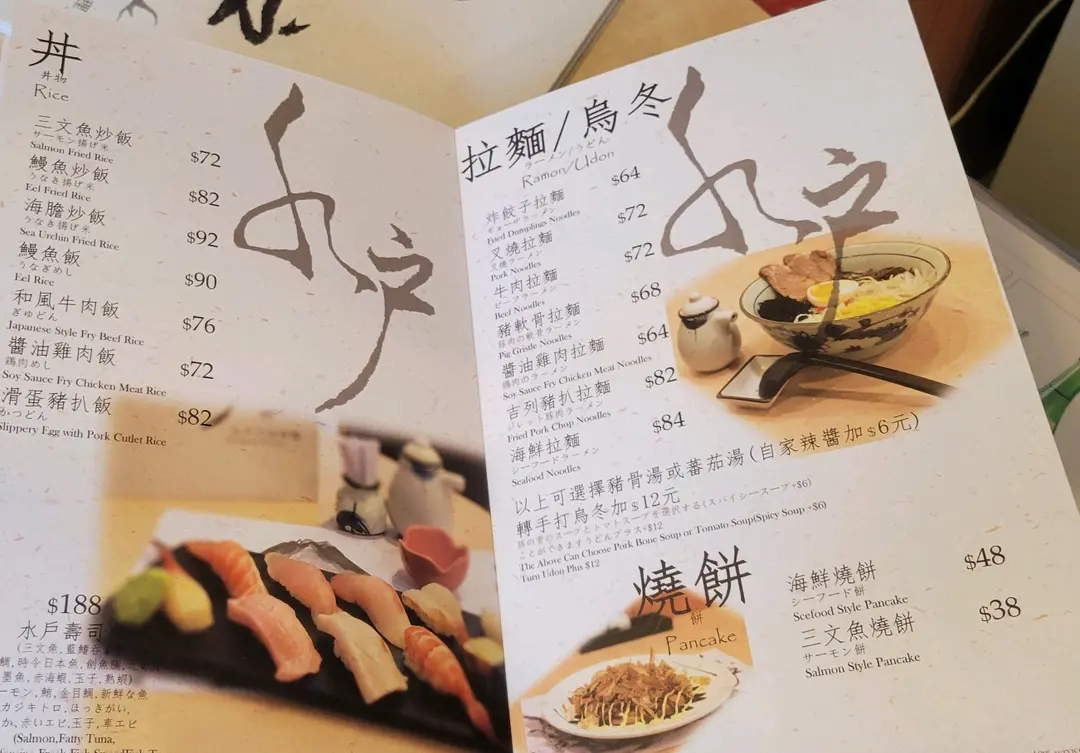 丼
丼物
Rice
三文魚炒飯 $72
サーモン揚げ米
Salmon Fried Rice
鰻魚炒飯 $82
うなき揚げ米
Eel Fried Rice
海膽炒飯 $92
うなき揚げ米
Sea Urchin Fried Rice
鰻魚飯 $90
うなぎめし
Eel Rice
和風牛肉飯 $76
ぎゅどん
Japanese Style Fry Beef Rice
醬油雞肉飯 $72
鶏肉めし
Soy Sauce Fry Chicken Meat Rice
滑蛋豬扒飯 $82
かつどん
Slippery Egg with Pork Cutlet Rice
水戶
$188
水戶壽司
(三文魚,藍鰭吞
鯛,時令日本魚,劍魚腩
墨魚,赤海蝦,玉子,熟蝦)
ーモン,鮪,金目鯛,新鮮な魚
カジキトロ,ほっきがい,
か,赤いエビ,玉子,車エビ
(Salmon,Fatty Tuna,
拉麵/烏冬
ラーメン/うどん
Ramon/Udon
炸餃子拉麵 $64
ギョーザラーメン
Fried Dumplings Noodles
叉燒拉麵 $72
叉焼ラーメン
Pork Noodles
牛肉拉麵 $72
ビーフラーメン
Beef Noodles
豬軟骨拉麵 $68
豚肉の軟骨ラーメン
Pig Gristle Noodles
醬油雞肉拉麵 $64
鶏肉のラーメン
Soy Sauce Fry Chicken Meat Noodles
吉列豬扒拉麵 $82
ジレット豚肉ラーメン
Fried Pork Chop Noodles
海鮮拉麵 $84
シーフードラーメン
Seafood Noodles
水戶
以上可選擇豬骨湯或蕃茄湯(自家辣醬加$6元)
轉手打烏冬加$12元
豚の骨のスープとトマトスープを選択する(スパイシースープ+$6)
ことができますうどんプラス+$12
The Above Can Choose Pork Bone Soup or Tomato Soup(Spicy Soup +$6)
Turn Udon Plus $12
燒餅
餅
Pancake
海鮮燒餅 $48
シーフード餅
Scefood Style Pancake
三文魚燒餅 $38
サーモン餅
Salmon Style Pancake